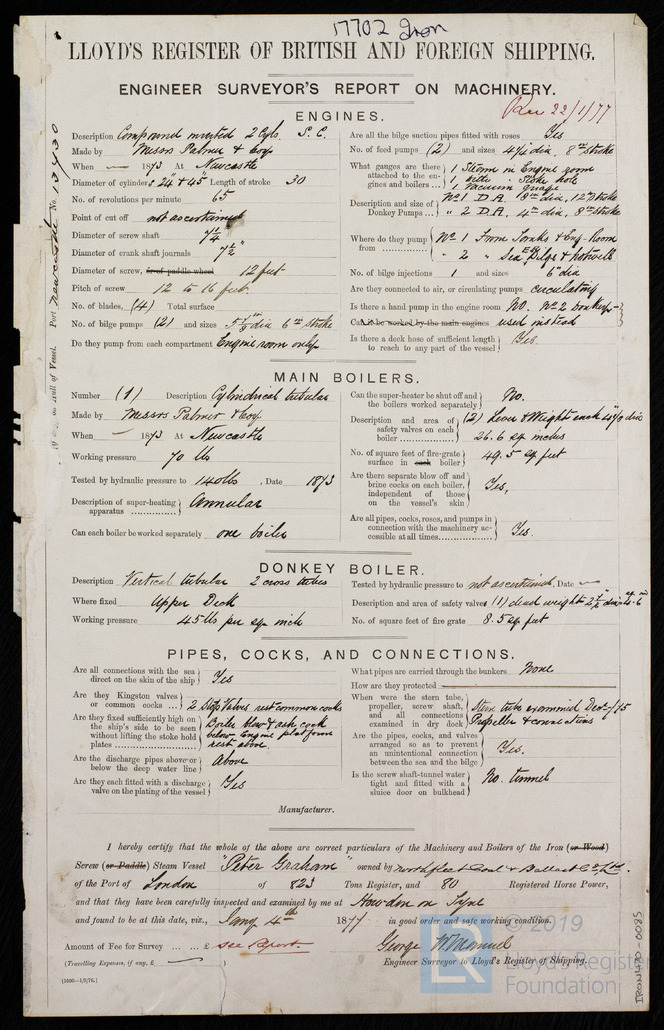 17702 Iron
LLOYD'S REGISTER OF BRITISH AND FOREIGN SHIPPING.
ENGINEER SURVEYOR'S REPORT ON MACHINERY.
Rec 22/1/77
Port Newcastle No. 13430
on Hull of Vessel.
ENGINES.
Description Compound inverted 2 Cyls. S.C.
Made by Messrs Palmer & Coy
When — 1873 At Newcastle
Diameter of cylinders 24" & 45" Length of stroke 30
No. of revolutions per minute 65
Point of cut off not ascertained
Diameter of screw shaft 7 1/4
Diameter of crank shaft journals 7 1/2"
Diameter of screw, or of paddle wheel 12 feet
Pitch of screw 12 to 16 feet.
No. of blades, (4) Total surface
No. of bilge pumps (2) and sizes dia 6 in stroke
Do they pump from each compartment Engine room only
Are all the bilge suction pipes fitted with roses Yes
No. of feed pumps (2) and sizes dia. 8 in stroke
What gauges are there attached to the engines and boilers ... 1 Steam in Engine room
1 ditto Stoke hole
1 Vacuum guage
Description and size of Donkey Pumps ... No 1 D.A. 8 in dia, 12 in stroke
" 2 D.A. 4 in dia, 8 in stroke
Where do they pump from No 1 From Tanks & Eng-Room
" 2 " Sea Bilge & hotwell
No. of bilge injections 1 and sizes 6" dia
Are they connected to air, or circulating pumps circulating
Is there a hand pump in the engine room No. No 2 donkey
Can it be worked by the main engines used instead
Is there a deck hose of sufficient length to reach to any part of the vessel Yes.
MAIN BOILERS.
Number (1) Description Cylindrical tubular
Made by Messrs Palmer & Coy
When — 1873 At Newcastle
Working pressure 70 lbs
Tested by hydraulic pressure to 140 lbs, Date 1873
Description of super-heating apparatus Annular
Can each boiler be worked separately one boiler
Can the super-heater be shut off and the boilers worked separately No.
Description and area of safety valves on each boiler (2) Lever & Weight each dia
26.6 sq inches
No. of square feet of fire-grate surface in each boiler 49.5 sq feet
Are there separate blow off and brine cocks on each boiler, independent of those on the vessel's skin Yes,
Are all pipes, cocks, roses, and pumps in connection with the machinery accessible at all times Yes.
DONKEY BOILER.
Description Vertical tubular 2 cross tubes
Where fixed Upper Deck
Working pressure 45 lbs per sq inch
Tested by hydraulic pressure to not ascertained, Date —
Description and area of safety valves (1) dead weight dia
No. of square feet of fire grate 8.5 sq feet
PIPES, COCKS, AND CONNECTIONS.
Are all connections with the sea direct on the skin of the ship Yes
Are they Kingston valves or common cocks ... 2 Stop Valves rest common cocks
Are they fixed sufficiently high on the ship's side to be seen without lifting the stoke hold plates Boiler blow & ash cock
below Engine platform
rest above.
Are the discharge pipes above or below the deep water line Above
Are they each fitted with a discharge valve on the plating of the vessel Yes
What pipes are carried through the bunkers None
How are they protected
When were the stern tube, propeller, screw shaft, and all connections examined in dry dock Stern tube examined Dec-/75
Propeller & connections
Are the pipes, cocks, and valves arranged so as to prevent an unintentional connection between the sea and the bilge Yes.
Is the screw shaft-tunnel water tight and fitted with a sluice door on bulkhead No. tunnel
Manufacturer.
I hereby certify that the whole of the above are correct particulars of the Machinery and Boilers of the Iron (or Wood)
Screw (or Paddle) Steam Vessel "Peter Graham" owned by Northfleet Coal & Ballast Co Ltd.
of the Port of London of 823 Tons Register, and 80 Registered Horse Power,
and that they have been carefully inspected and examined by me at Howdon on Tyne
and found to be at this date, viz., Jany 4th 1877 in good order and safe working condition.
Amount of Fee for Survey ... ... £ see Report
George W Manuel
Engineer Surveyor to Lloyd's Register of Shipping.
(Travelling Expenses, if any, £ — )
(1000—1/9/76.)
© 2019
Lloyd's Register
Foundation
IRON400-0085